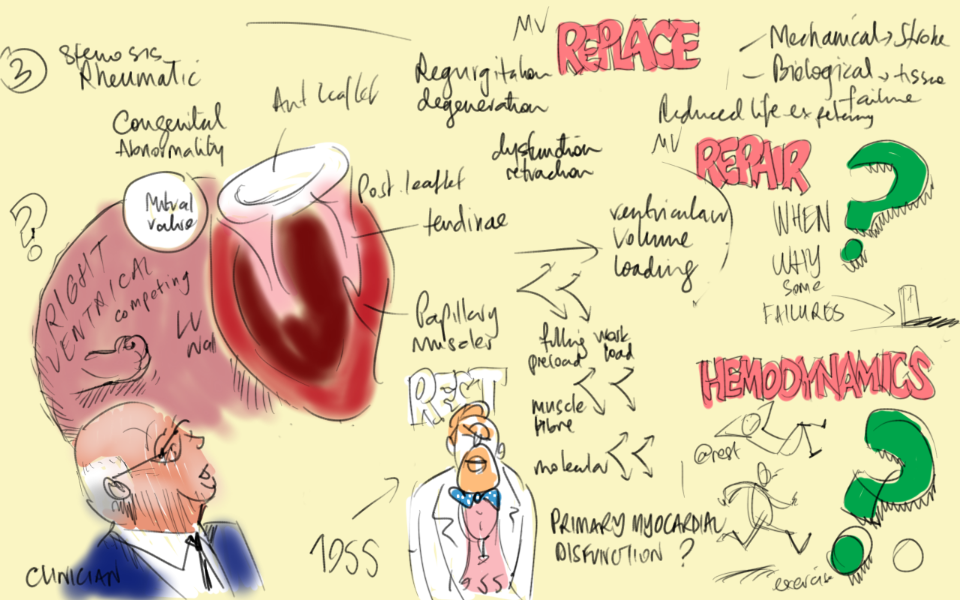 3
Stenosis
Rheumatic
Congenital
Abnormality
Ant leaflet
Regurgitation
degeneration
dysfunction
retraction
MV
REPLACE
Mechanical → Stroke
Biological → tissue
failure
Reduced life expectancy
MV
REPAIR
?
WHEN
WHY
some
FAILURES
?
Mitral
valve
Post. leaflet
tendinae
Papillary
Muscles
RIGHT
VENTRICAL
competing
LV
Wall
ventricular
volume
loading
filling
preload
work
load
muscle
fibre
molecular
RECT
HEMODYNAMICS
?
@rest
exercise
PRIMARY MYOCARDIAL
DISFUNCTION ?
1955
CLINICIAN